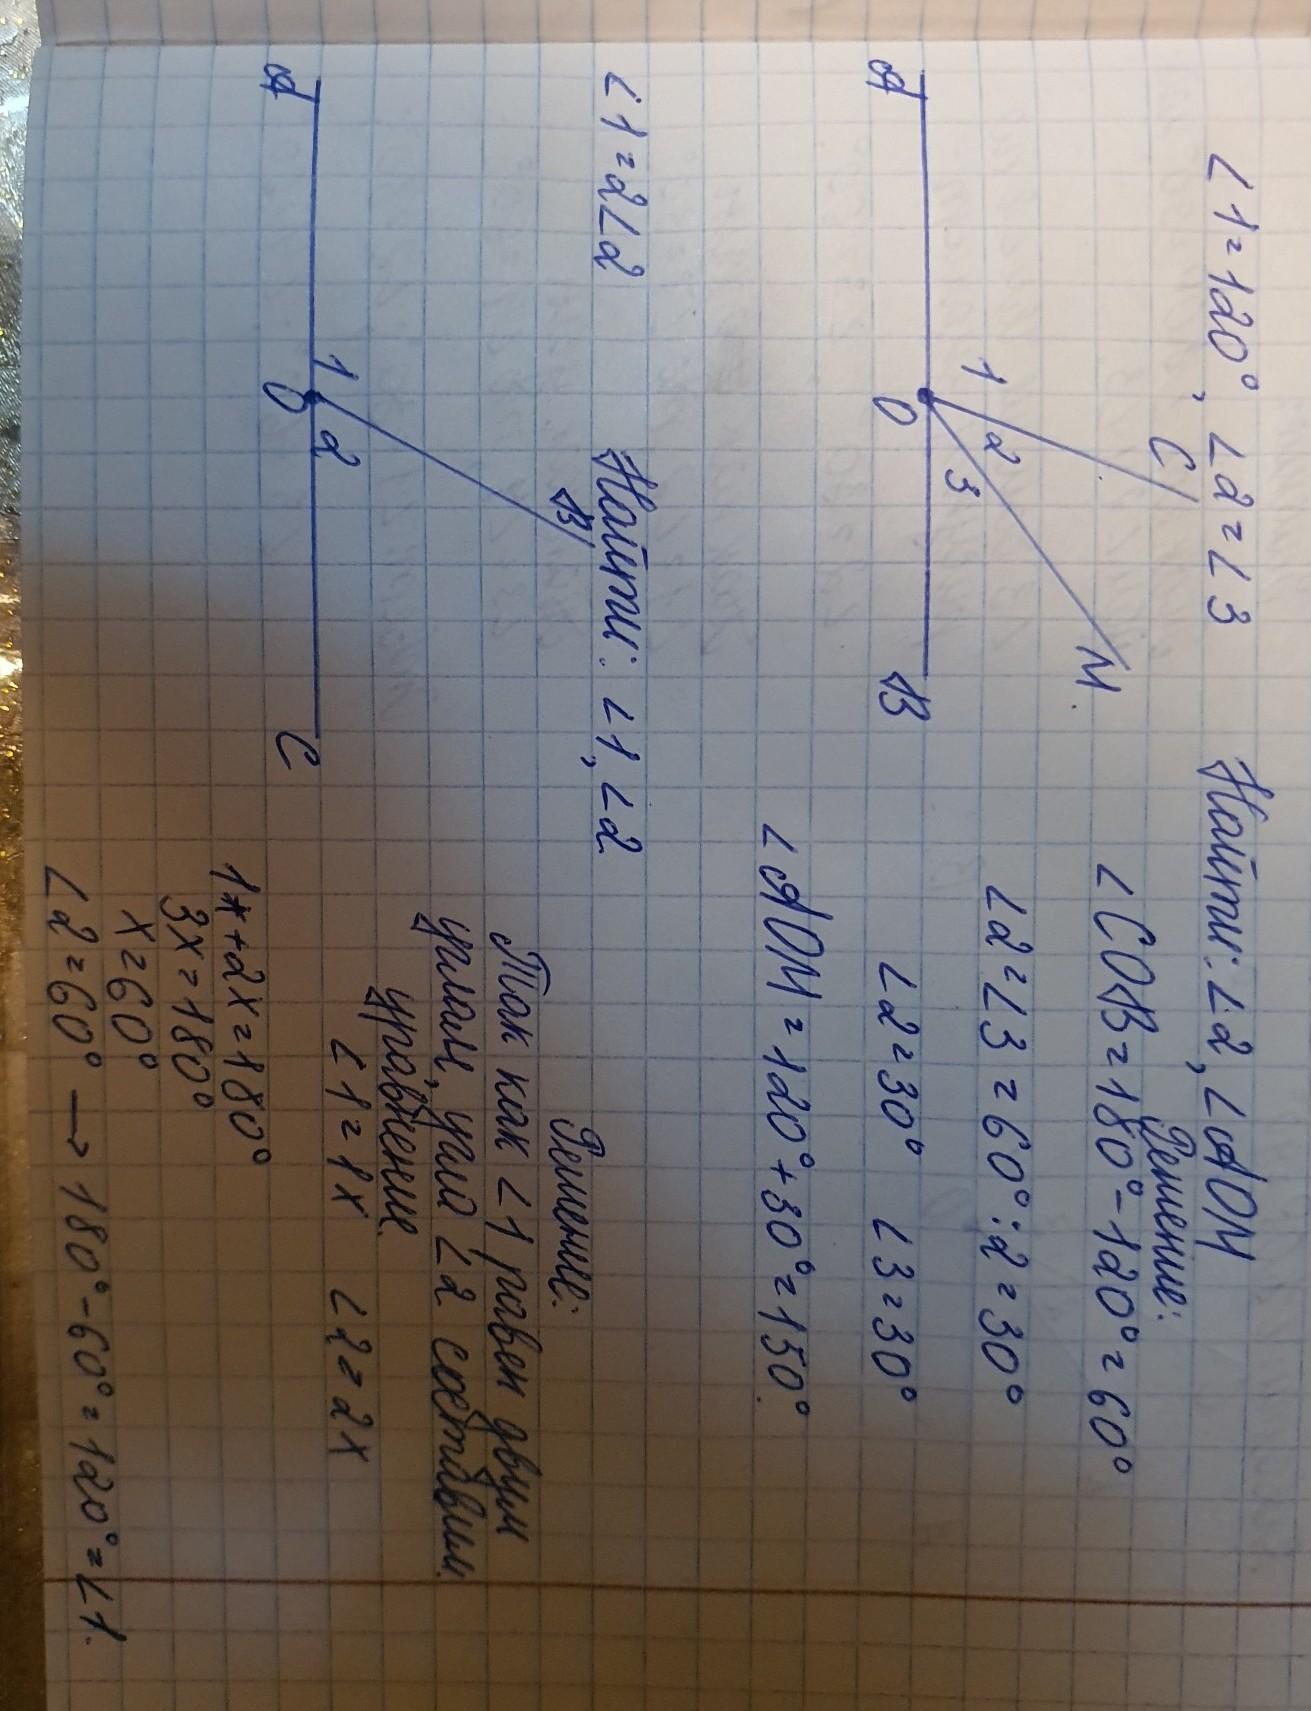 ∠1=120°, ∠2=∠3 Найти: ∠2, ∠AOM
Решение:
C
M
1
2
3
A
O
B
∠COB=180°-120°=60°
∠2=∠3=60°:2=30°
∠2=30° ∠3=30°
∠AOM=120°+30°=150°.
∠1=2∠2 Найти: ∠1, ∠2
B
1
2
A
O
C
Решение:
Так как ∠1 равен двум
углам, угла ∠2 составим
уравнение.
∠1=1x ∠2=2x
1x+2x=180°
3x=180°
x=60°
∠2=60° → 180°-60°=120°=∠1.